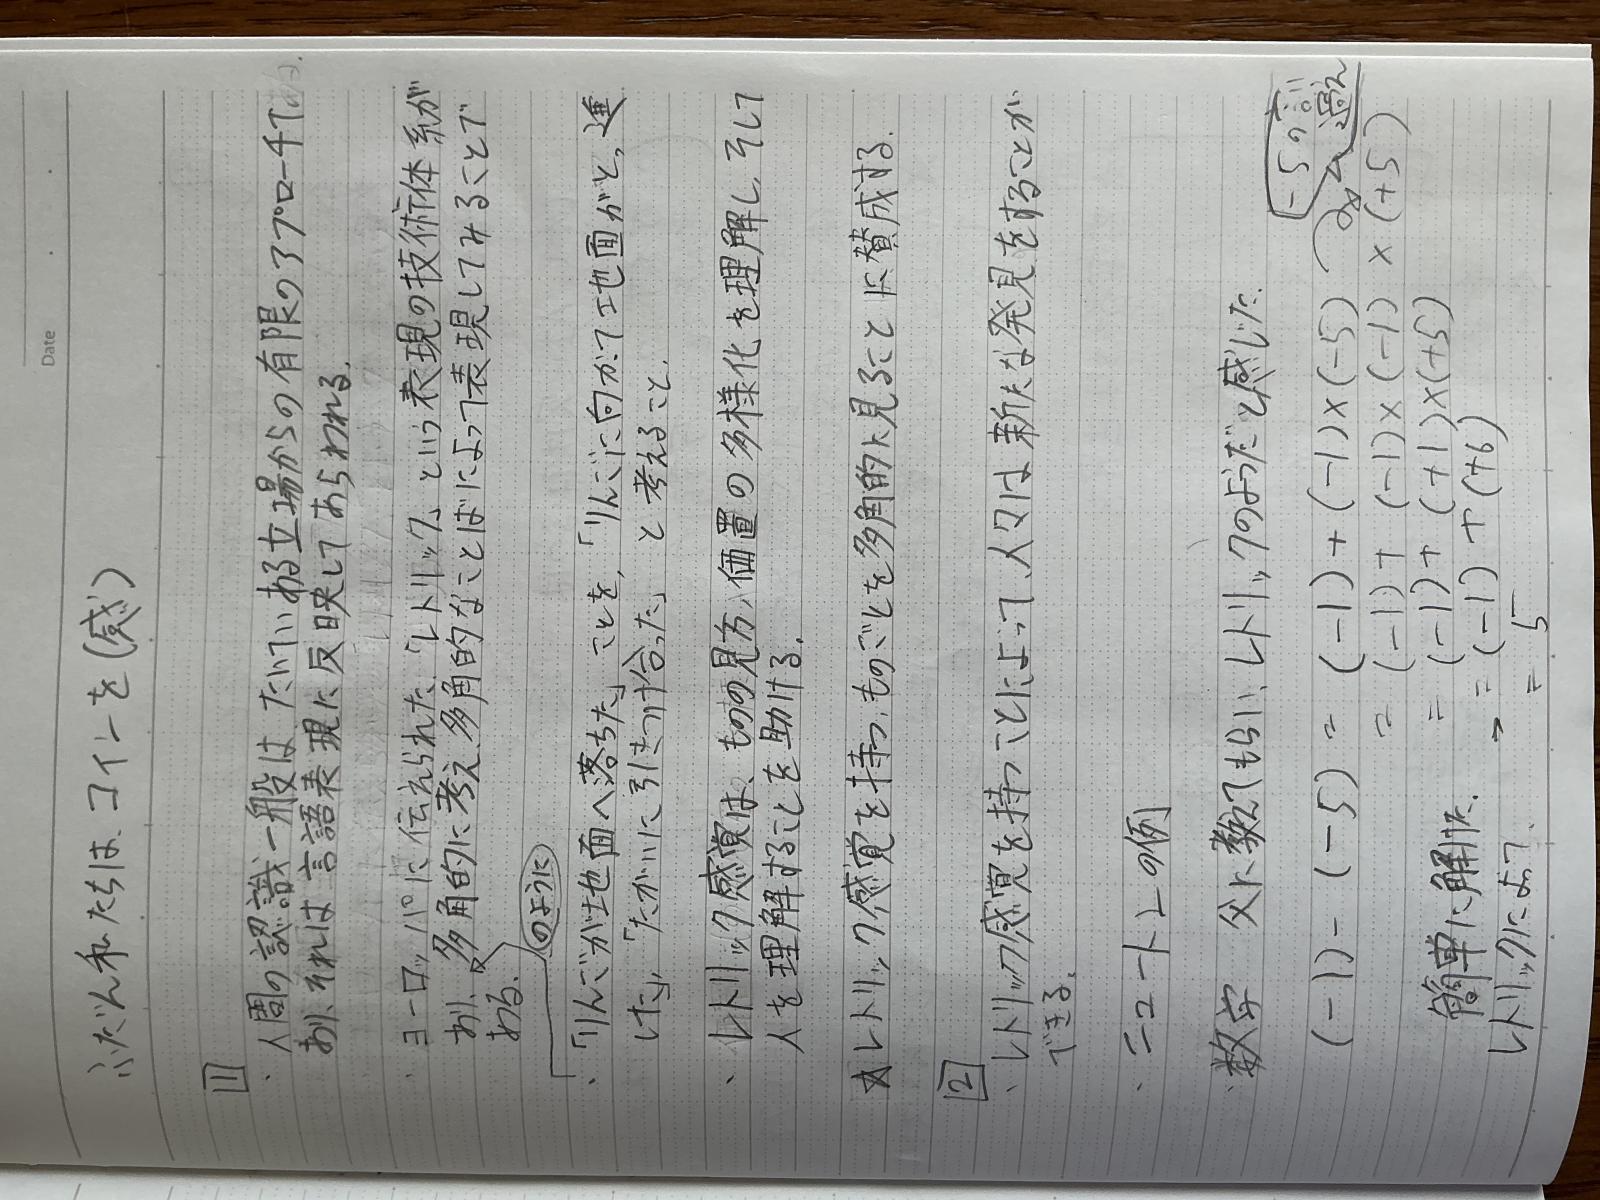 Date
ふだん私たちは、コインを(感)
1
・人間の認識一般は、たいていある立場からの有限のアプローチであ
り、それは言語表現に反映してあらわれる。
・ヨーロッパに伝えられた「レトリック」という表現の技術体系が
あり、多角的に考え、多角的なことばによって表現してみることで
ある。
のように
・「りんごが地面へ落ちた」ことを、「りんごに向かって地面がと、進
した」、「たがいに引きつけ合った」と考えること。
・レトリック感覚は、ものの見方、価置の多様化を理解し、そして
人を理解することを助ける。
☆レトリック感覚を持つ、ものごとを多角的に見ることに賛成する。
2
・レトリック感覚を持つことによって、人々は新たな発見をすることが
できる。
・ニュートンの例
・数学 父に教えてもらい、レトリックのようだと感じた。
-5の言い換え
(-1)-(-5) = (-1)+(-1)×(-5)
= (-1)+(-1)×(-1)×(+5)
= (-1)+(+1)×(+5)
簡単に解けた。 → = (-1)+(+6)
レトリックによって、 = 5